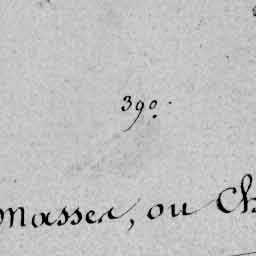 390.
Masser, ou Ch